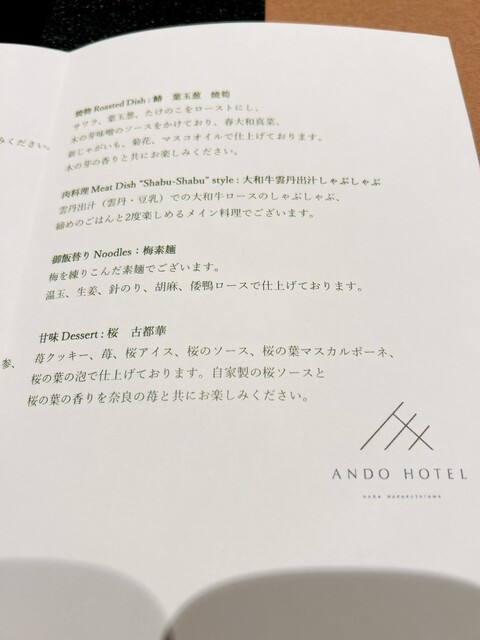 焼物 Roasted Dish : 鰆　葉玉葱　焼筍
サワラ、葉玉葱、たけのこをローストにし、
木の芽味噌のソースをかけており、春大和真菜、
新じゃがいも、菊花、マスコオイルで仕上げております。
木の芽の香りと共にお楽しみください。
みください。
肉料理 Meat Dish “Shabu-Shabu” style : 大和牛雲丹出汁しゃぶしゃぶ
雲丹出汁（雲丹・豆乳）での大和牛ロースのしゃぶしゃぶ、
締めのごはんと2度楽しめるメイン料理でございます。
御飯替り Noodles：梅素麺
梅を練りこんだ素麺でございます。
温玉、生姜、針のり、胡麻、倭鴨ロースで仕上げております。
甘味 Dessert : 桜　古都華
参、
苺クッキー、苺、桜アイス、桜のソース、桜の葉マスカルポーネ、
桜の葉の泡で仕上げております。自家製の桜ソースと
桜の葉の香りを奈良の苺と共にお楽しみください。
ANDO HOTEL
NARA WAKAKUSAYAMA